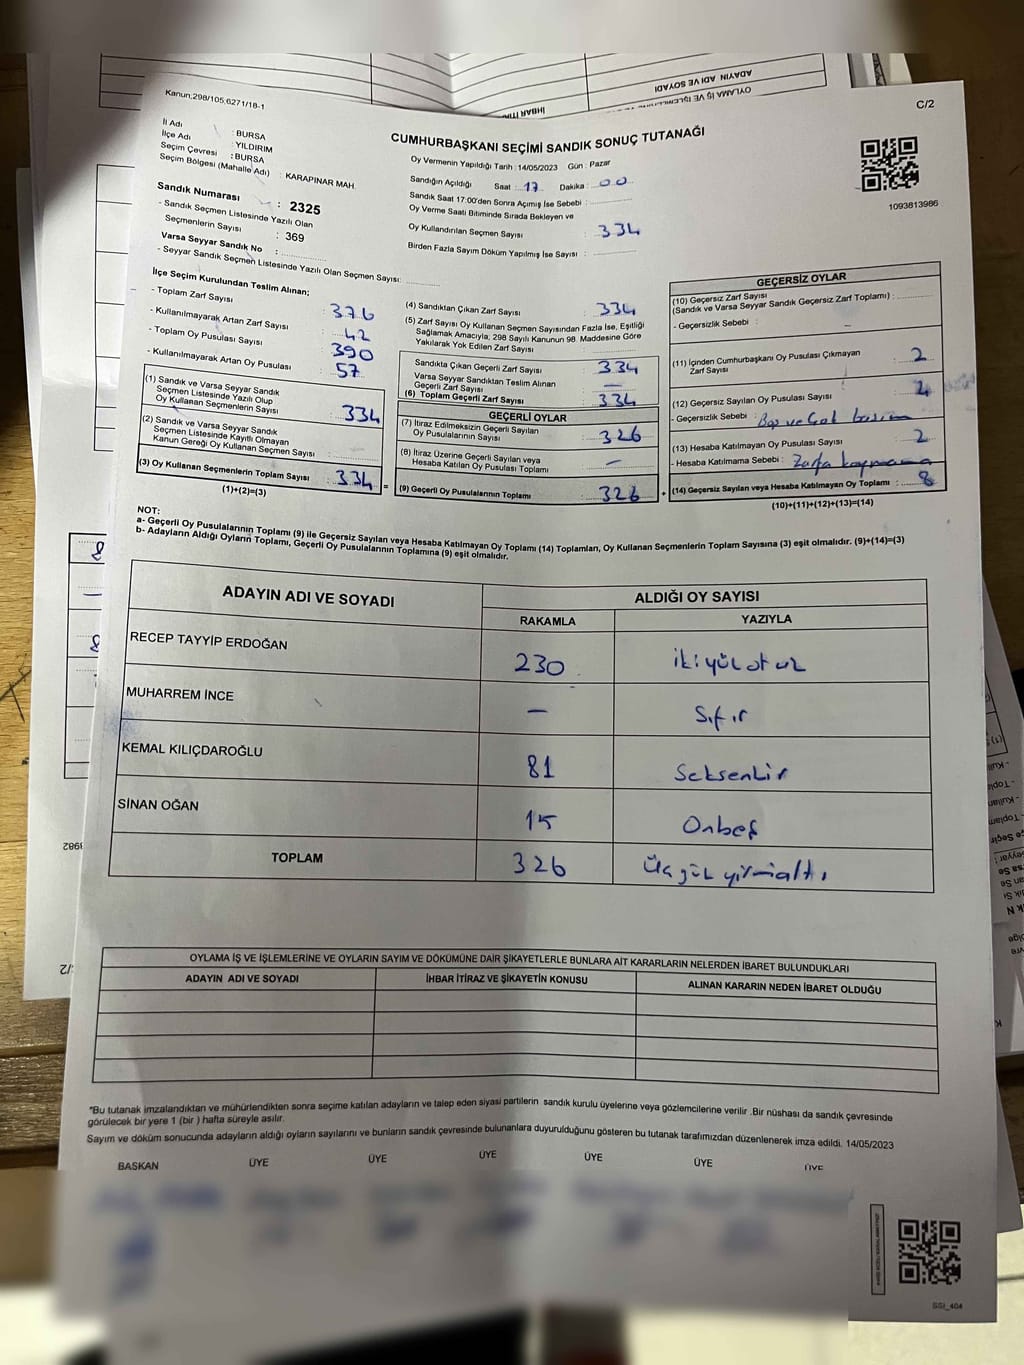 ADAYIN ADI VE SOYADI
Kanun;298/105,6271/18-1
C/2
CUMHURBAŞKANI SEÇİMİ SANDIK SONUÇ TUTANAĞI
İl Adı : BURSA
İlçe Adı : YILDIRIM
Seçim Çevresi : BURSA
Seçim Bölgesi (Mahalle Adı) : KARAPINAR MAH.
Sandık Numarası : 2325
- Sandık Seçmen Listesinde Yazılı Olan
Seçmenlerin Sayısı : 369
Varsa Seyyar Sandık No :
- Seyyar Sandık Seçmen Listesinde Yazılı Olan Seçmen Sayısı:
Oy Vermenin Yapıldığı Tarih : 14/05/2023 Gün : Pazar
Sandığın Açıldığı Saat : 17 Dakika : 00
Sandık Saat 17:00'den Sonra Açımış İse Sebebi :
Oy Verme Saati Bitiminde Sırada Bekleyen ve
Oy Kullandırılan Seçmen Sayısı : 334
Birden Fazla Sayım Döküm Yapılmış İse Sayısı :
1093813986
İlçe Seçim Kurulundan Teslim Alınan;
- Toplam Zarf Sayısı : 376
- Kullanılmayarak Artan Zarf Sayısı : 42
- Toplam Oy Pusulası Sayısı : 390
- Kullanılmayarak Artan Oy Pusulası : 57
(1) Sandık ve Varsa Seyyar Sandık
Seçmen Listesinde Yazılı Olup
Oy Kullanan Seçmenlerin Sayısı : 334
(2) Sandık ve Varsa Seyyar Sandık
Seçmen Listesinde Kayıtlı Olmayan
Kanun Gereği Oy Kullanan Seçmen Sayısı :
(3) Oy Kullanan Seçmenlerin Toplam Sayısı : 334 =
(1)+(2)=(3)
(4) Sandıktan Çıkan Zarf Sayısı : 334
(5) Zarf Sayısı Oy Kullanan Seçmen Sayısından Fazla İse, Eşitliği
Sağlamak Amacıyla; 298 Sayılı Kanunun 98. Maddesine Göre
Yakılarak Yok Edilen Zarf Sayısı :
Sandıkta Çıkan Geçerli Zarf Sayısı : 334
Varsa Seyyar Sandıktan Teslim Alınan
Geçerli Zarf Sayısı : —
(6) Toplam Geçerli Zarf Sayısı : 334
GEÇERLİ OYLAR
(7) İtiraz Edilmeksizin Geçerli Sayılan
Oy Pusulalarının Sayısı : 326
(8) İtiraz Üzerine Geçerli Sayılan veya
Hesaba Katılan Oy Pusulası Toplamı : —
(9) Geçerli Oy Pusulalarının Toplamı : 326 +
GEÇERSİZ OYLAR
(10) Geçersiz Zarf Sayısı
(Sandık ve Varsa Seyyar Sandık Geçersiz Zarf Toplamı) :
- Geçersizlik Sebebi : —
(11) İçinden Cumhurbaşkanı Oy Pusulası Çıkmayan
Zarf Sayısı : 2
(12) Geçersiz Sayılan Oy Pusulası Sayısı : 4
- Geçersizlik Sebebi : Boş ve Çat basım
(13) Hesaba Katılmayan Oy Pusulası Sayısı : 2
- Hesaba Katılmama Sebebi : Zarfa koymama
(14) Geçersiz Sayılan veya Hesaba Katılmayan Oy Toplamı : 8
(10)+(11)+(12)+(13)=(14)
NOT:
a- Geçerli Oy Pusulalarının Toplamı (9) ile Geçersiz Sayılan veya Hesaba Katılmayan Oy Toplamı (14) Toplamları, Oy Kullanan Seçmenlerin Toplam Sayısına (3) eşit olmalıdır. (9)+(14)=(3)
b- Adayların Aldığı Oyların Toplamı, Geçerli Oy Pusulalarının Toplamına (9) eşit olmalıdır.
ADAYIN ADI VE SOYADI ALDIĞI OY SAYISI
RAKAMLA YAZIYLA
RECEP TAYYİP ERDOĞAN 230 ikiyüz otuz
MUHARREM İNCE — Sıfır
KEMAL KILIÇDAROĞLU 81 Seksenbir
SİNAN OĞAN 15 Onbeş
TOPLAM 326 Üçyüz yirmialtı
OYLAMA İŞ VE İŞLEMLERİNE VE OYLARIN SAYIM VE DÖKÜMÜNE DAİR ŞİKAYETLERLE BUNLARA AİT KARARLARIN NELERDEN İBARET BULUNDUKLARI
ADAYIN ADI VE SOYADI İHBAR İTİRAZ VE ŞİKAYETİN KONUSU ALINAN KARARIN NEDEN İBARET OLDUĞU
*Bu tutanak imzalandıktan ve mühürlendikten sonra seçime katılan adayların ve talep eden siyasi partilerin sandık kurulu üyelerine veya gözlemcilerine verilir .Bir nüshası da sandık çevresinde
görülecek bir yere 1 (bir ) hafta süreyle asılır.
Sayım ve döküm sonucunda adayların aldığı oyların sayılarını ve bunların sandık çevresinde bulunanlara duyurulduğunu gösteren bu tutanak tarafımızdan düzenlenerek imza edildi. 14/05/2023
BASKAN ÜYE ÜYE ÜYE ÜYE ÜYE ÜYE
SSI_404